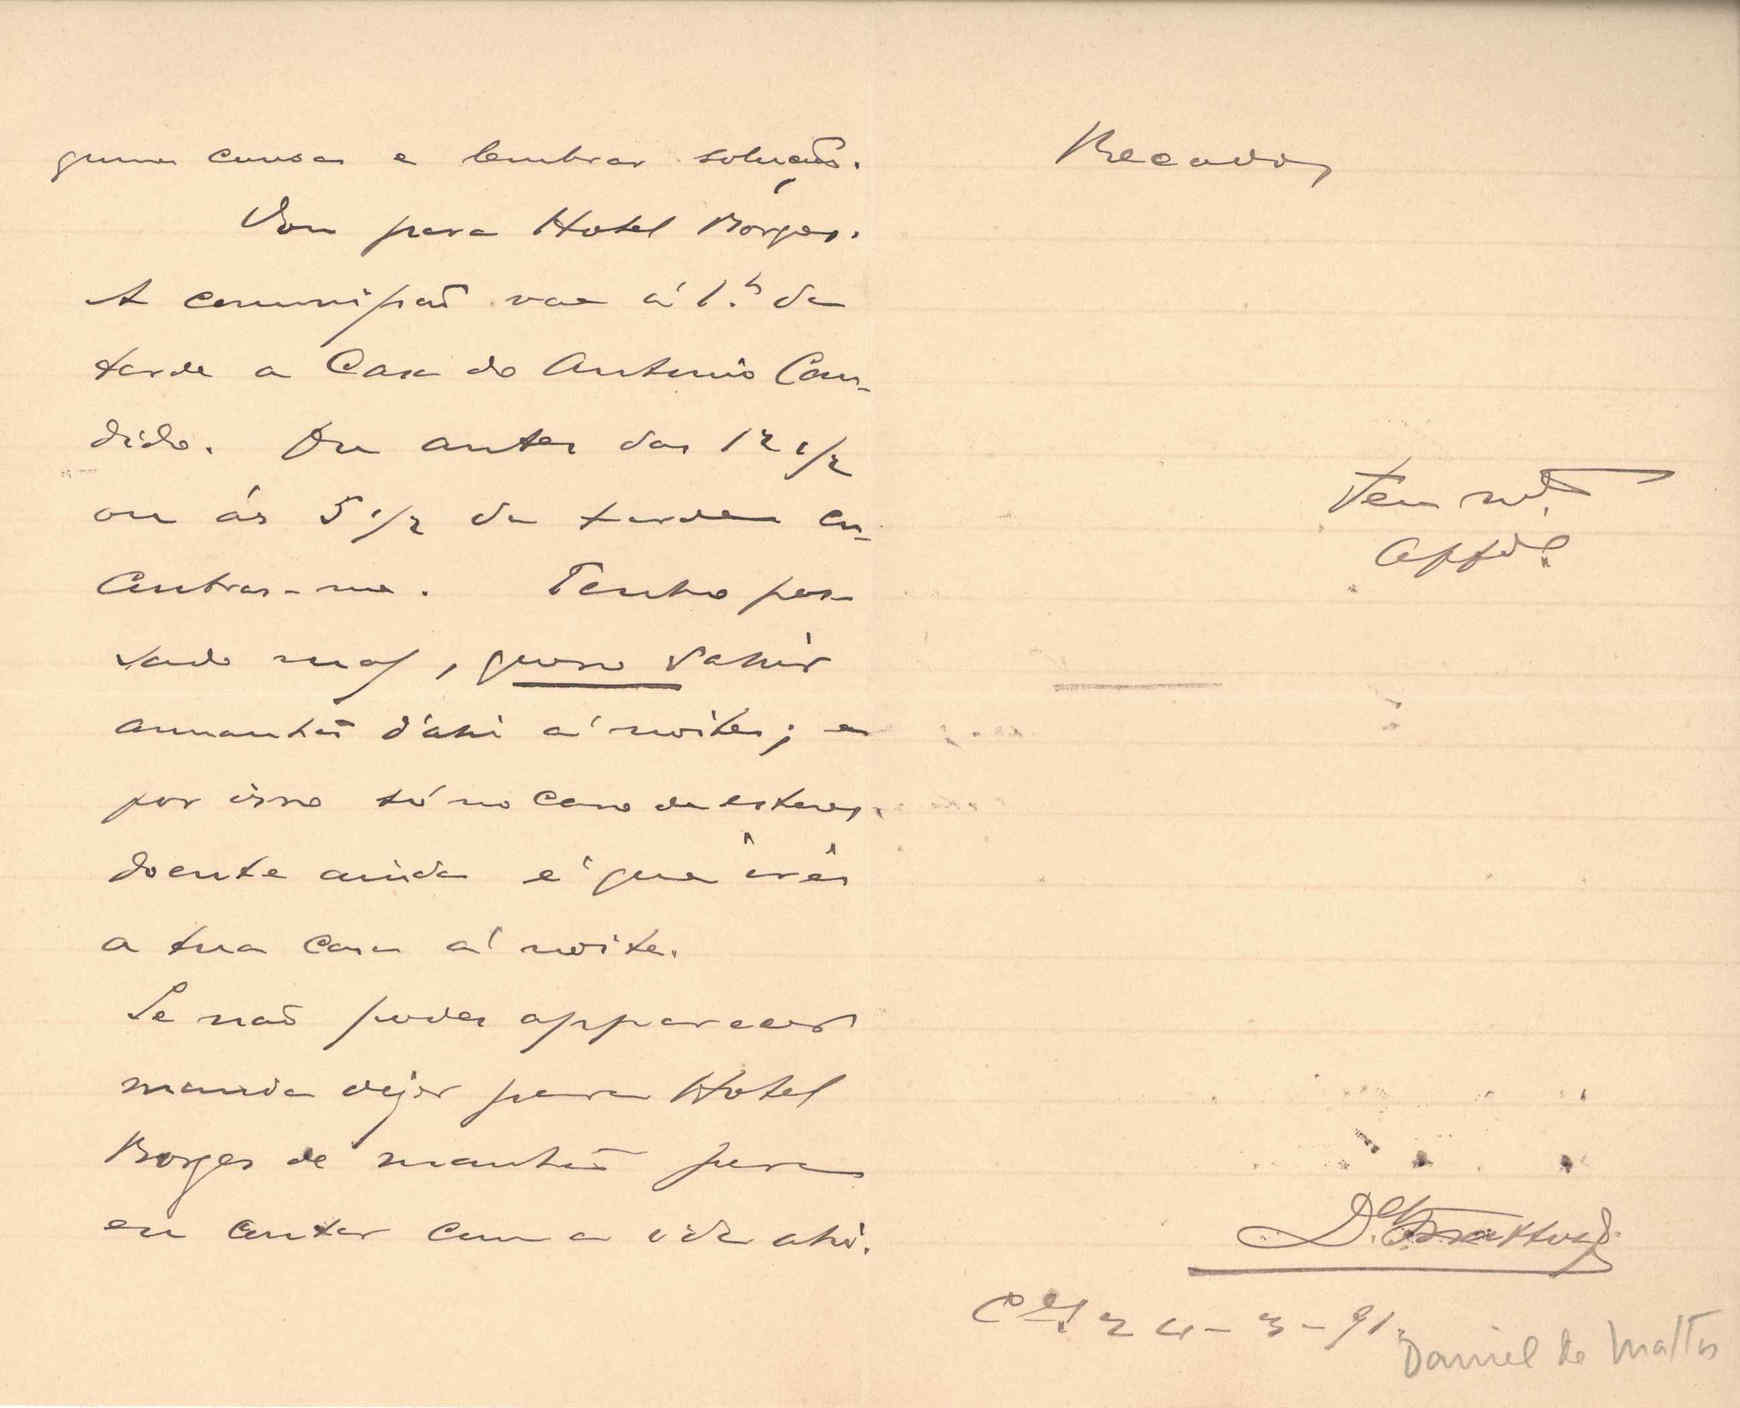 guma cousa e lembrar solução.
Vou para Hotel Borges.
A comunição vae á 1.h da
tarde a Casa do Antonio Can-
dido. Ou antes das 12 1/2
ou ás 5 1/2 da tarde en-
contras-me. Tenho pas-
sado mal, quero sahir
amanhã d'ahi á noite; e
por isso só no caso de estares
doente ainda é que irei
a tua casa á noite.
Se não podes apparecer
manda dizer para Hotel
Borges de manhã para
eu contar com a ida ahi.
Recados
Teu m.to
D. de Mattos
24-3-91.
Daniel de Mattos